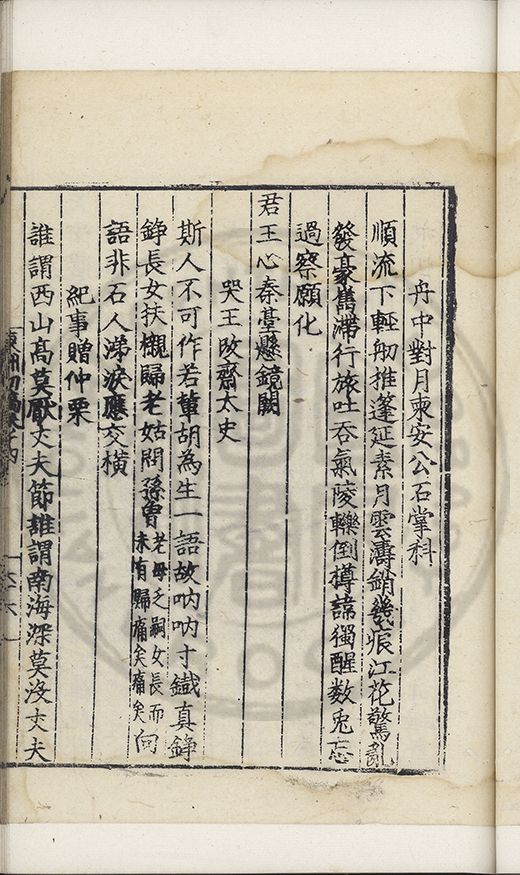 舟中對月柬安公石掌科
順流下輕舠推蓬延素月雲濤銷幾痕江花驚亂
發豪舊滯行旅吐吞氣陵轢倒樽諱獨醒数兎忘
過察願化
君王心秦臺懸鏡闕
哭王改齋太史
斯人不可作若董胡為生一語故吶吶寸鐵真錚
錚長女扶櫬歸老姑問孫曾老母乏嗣女長而未有歸痛矣痛矣向
語非石人涕淚應交橫
紀事贈仲栗
誰謂西山高莫厭丈夫節誰謂南海深莫没丈夫